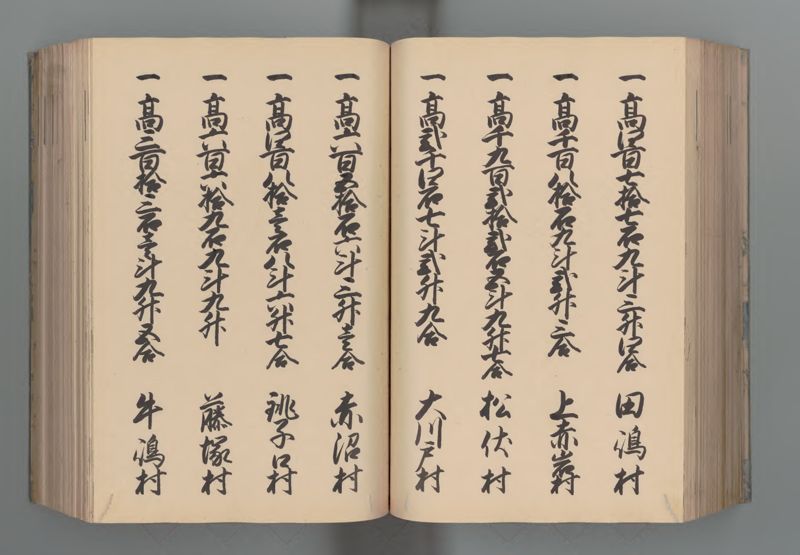 一 高四百七拾七石九斗三升四合 田嶋村
一 高千百八拾石九斗弐升三合 上赤岩村
一 高千九百弐拾弐石五斗九升七合 松伏村
一 高弐千四石七斗弐升九合 大川戸村
一 高六百五拾石六斗三升壱合 赤沼村
一 高四百八拾壱石八斗六升七合 銚子口村
一 高六百六拾九石九斗九升 藤塚村
一 高三百拾三石壱斗九升五合 牛嶋村